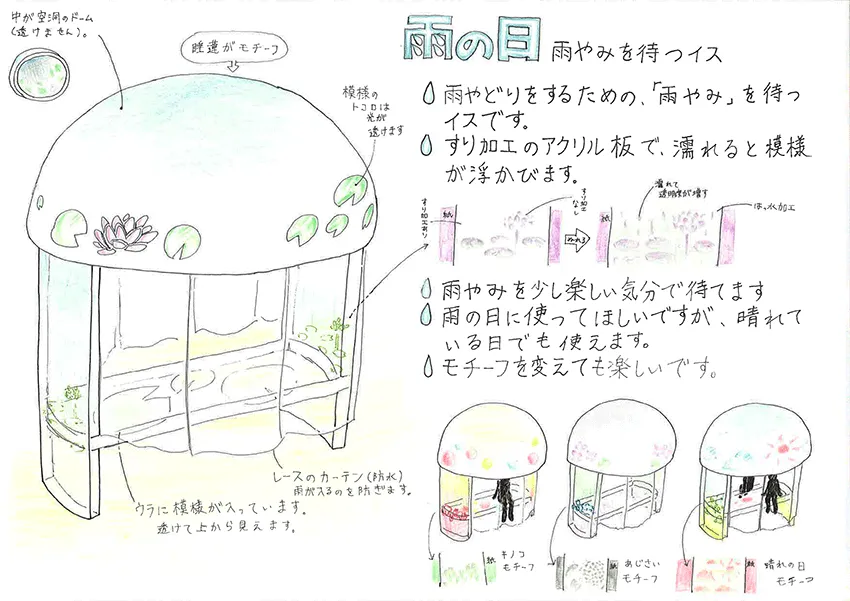 中が空洞のドーム
(透けません)。
睡蓮がモチーフ
模様の
トコロは
光が
透けます
雨の日 雨やみを待つイス
雨やどりをするための、「雨やみ」を待つ
イスです。
すり加工のアクリル板で、濡れると模様
が浮かびます。
すり加工あり
紙
すり加工
なし
ぬれる
濡れて
透明度が増す
紙
はっ水加工
雨やみを少し楽しい気分で待てます
雨の日に使ってほしいですが、晴れて
いる日でも使えます。
モチーフを変えても楽しいです。
レースのカーテン(防水)
雨が入るのを防ぎます。
ウラに模様が入っています。
透けて上から見えます。
紙
キノコ
モチーフ
紙
あじさい
モチーフ
紙
晴れの日
モチーフ